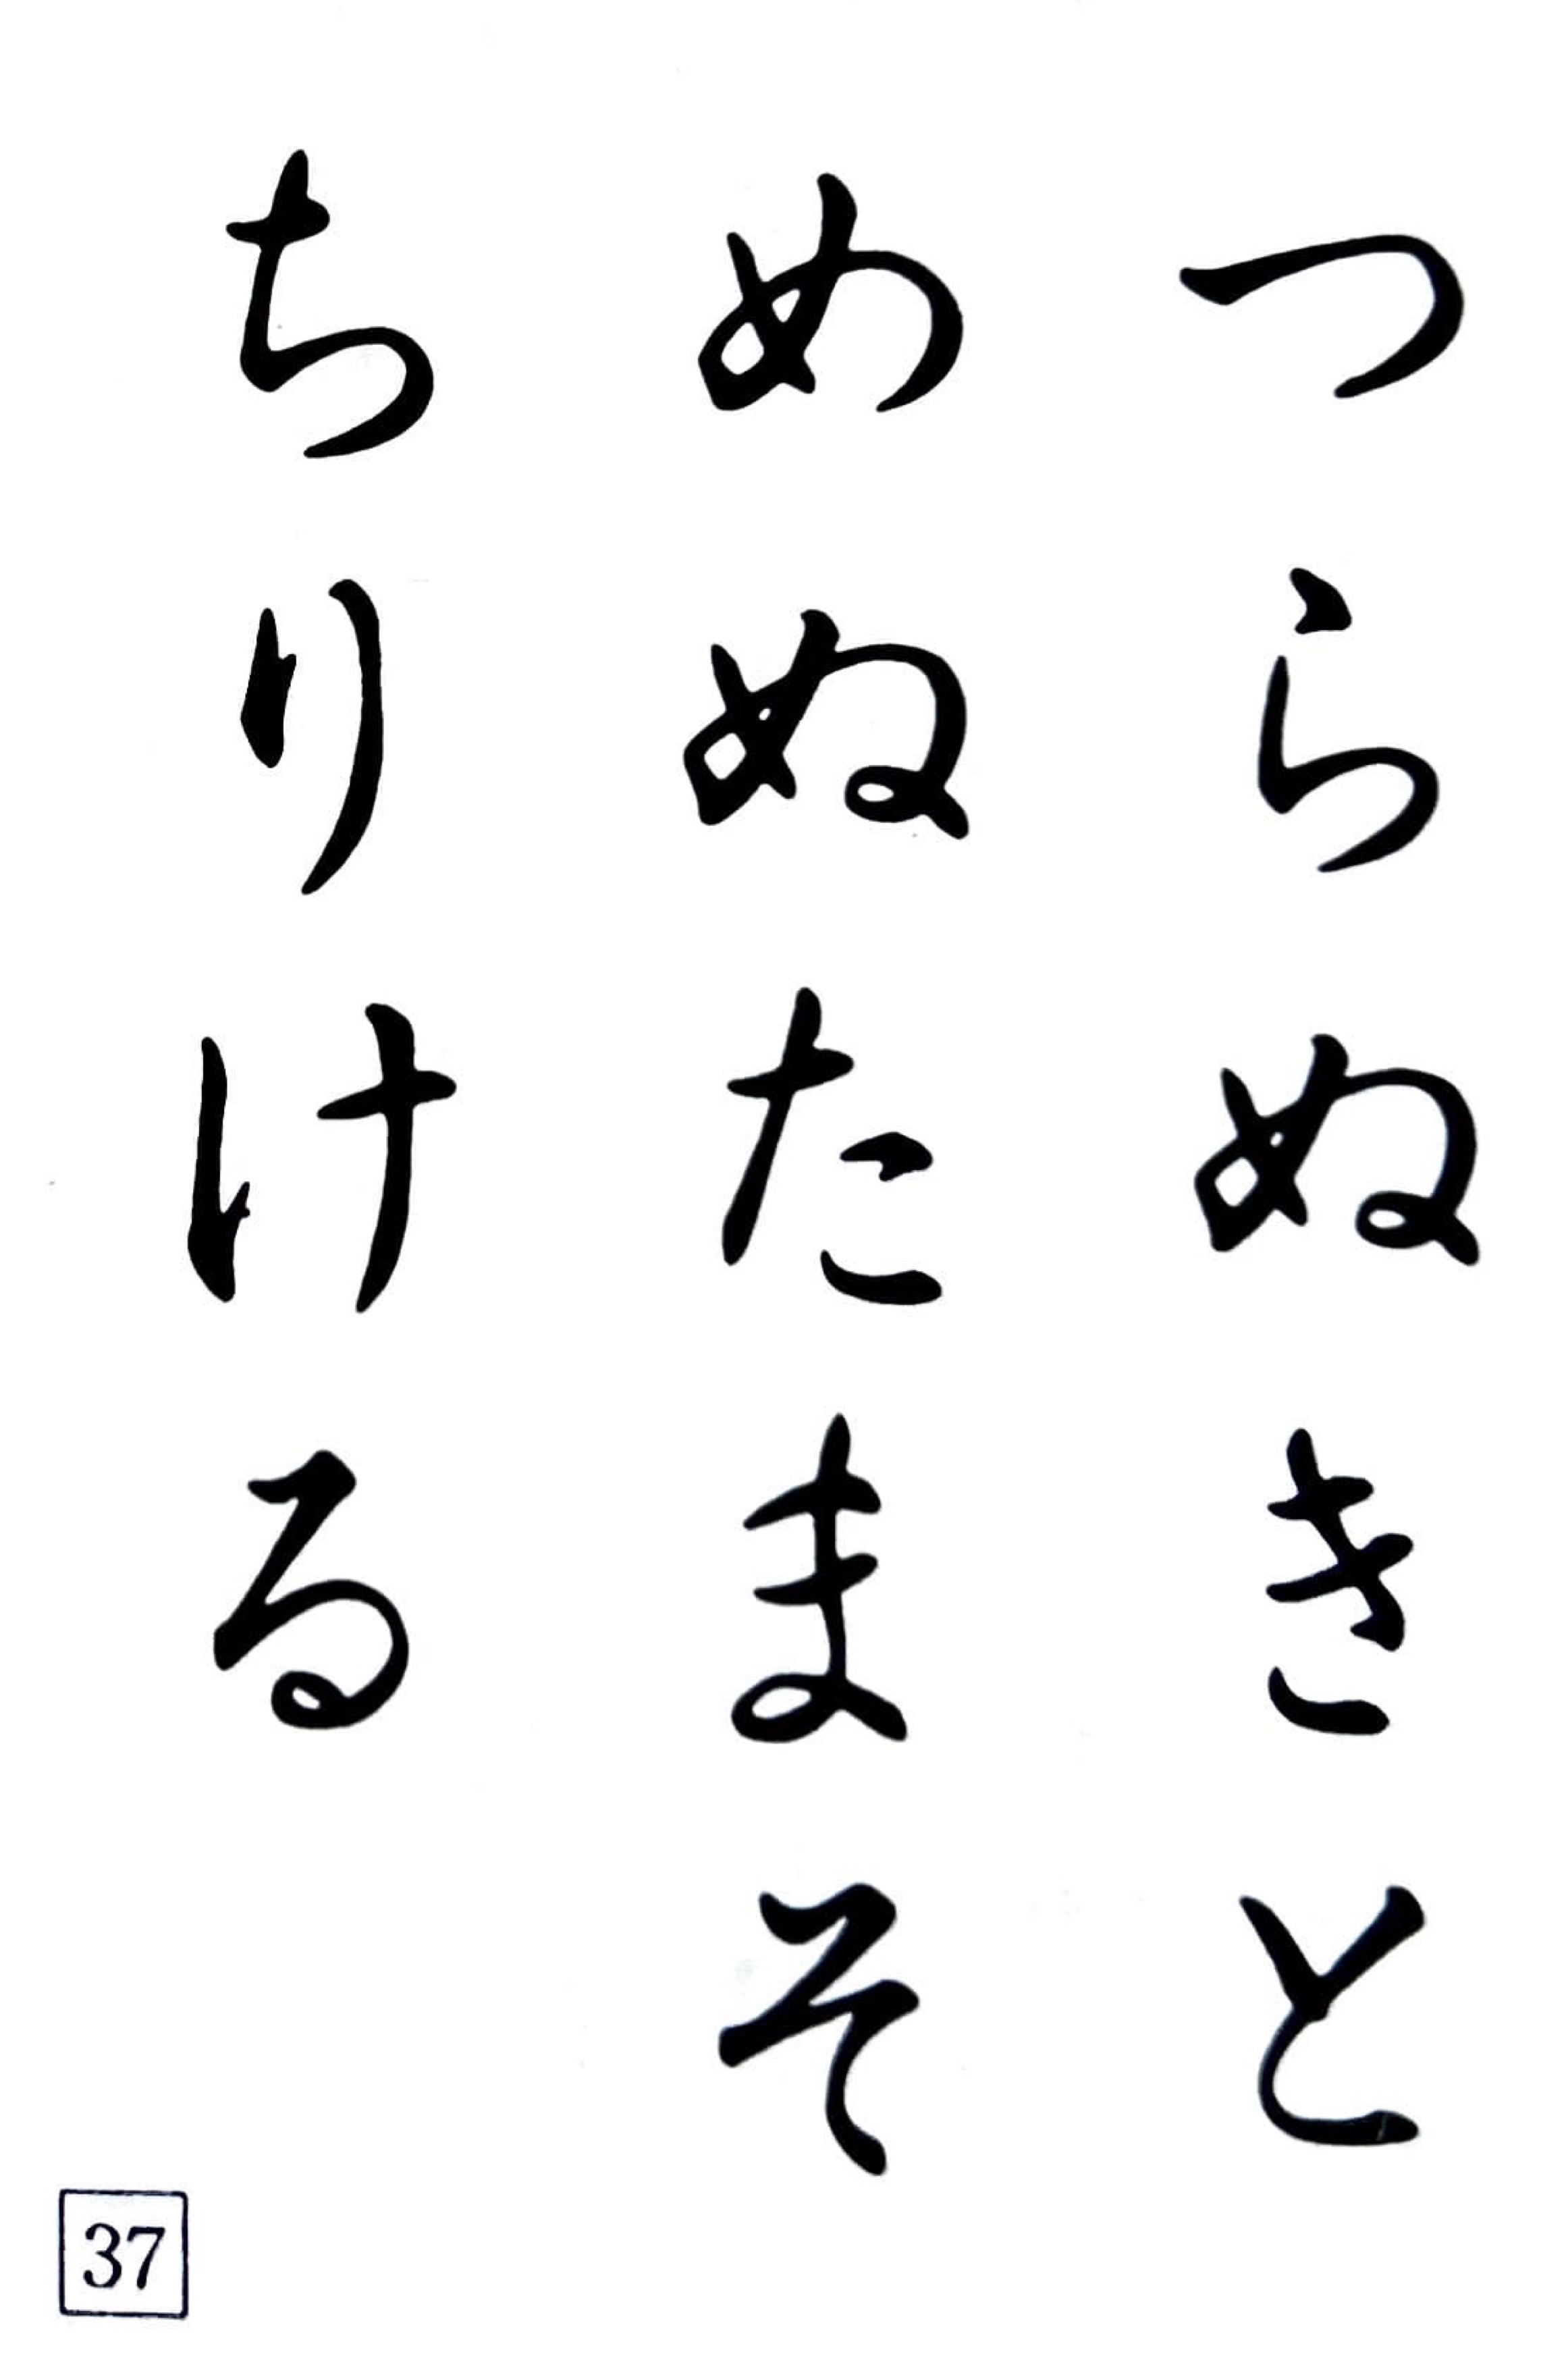 つらぬきと
めぬたまそ
ちりける
37